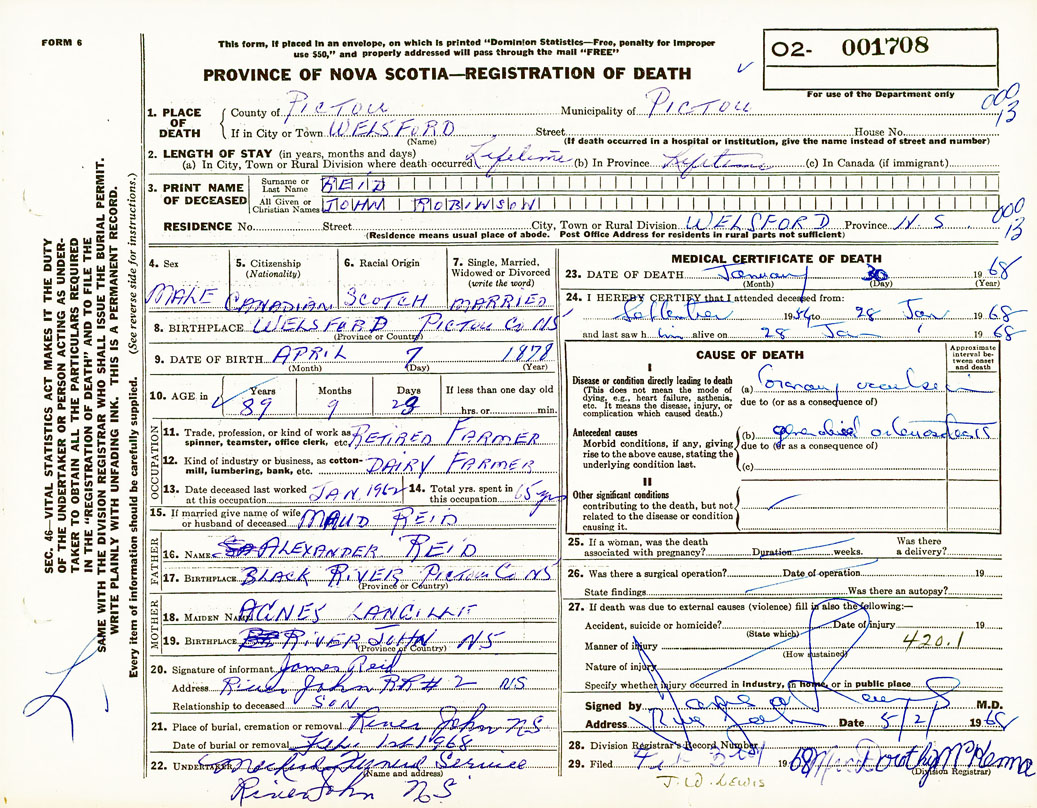 FORM 6
This form, if placed in an envelope, on which is printed "Dominion Statistics—Free, penalty for improper
use $50," and properly addressed will pass through the mail "FREE"
PROVINCE OF NOVA SCOTIA—REGISTRATION OF DEATH
O2- 001708
For use of the Department only
000
13
1. PLACE OF DEATH
County of PICTOU Municipality of PICTOU
If in City or Town WELSFORD Street House No.
(Name) (If death occurred in a hospital or institution, give the name instead of street and number)
2. LENGTH OF STAY (in years, months and days)
(a) In City, Town or Rural Division where death occurred Lifetime (b) In Province Lifetime (c) In Canada (if immigrant)
3. PRINT NAME OF DECEASED
Surname or Last Name REID
All Given or Christian Names JOHN ROBINSON
RESIDENCE No. Street City, Town or Rural Division WELSFORD Province N.S.
(Residence means usual place of abode. Post Office Address for residents in rural parts not sufficient)
000
13
SEC. 46—VITAL STATISTICS ACT MAKES IT THE DUTY
OF THE UNDERTAKER OR PERSON ACTING AS UNDER-
TAKER TO OBTAIN ALL THE PARTICULARS REQUIRED
IN THE "REGISTRATION OF DEATH" AND TO FILE THE
SAME WITH THE DIVISION REGISTRAR WHO SHALL ISSUE THE BURIAL PERMIT.
WRITE PLAINLY WITH UNFADING INK. THIS IS A PERMANENT RECORD.
Every item of information should be carefully supplied. (See reverse side for instructions.)
4. Sex
MALE
5. Citizenship
(Nationality)
CANADIAN
6. Racial Origin
SCOTCH
7. Single, Married,
Widowed or Divorced
(write the word)
MARRIED
8. BIRTHPLACE WELSFORD PICTOU Co NS
(Province or Country)
9. DATE OF BIRTH APRIL 7 1878
(Month) (Day) (Year)
10. AGE in Years Months Days If less than one day old
89 9 23 hrs. or min.
OCCUPATION
11. Trade, profession, or kind of work as
spinner, teamster, office clerk, etc. RETIRED FARMER
12. Kind of industry or business, as cotton-
mill, lumbering, bank, etc. DAIRY FARMER
13. Date deceased last worked
at this occupation JAN 1962
14. Total yrs. spent in
this occupation 65 yrs
15. If married give name of wife
or husband of deceased MAUD REID
FATHER
16. NAME ALEXANDER REID
17. BIRTHPLACE BLACK RIVER PICTOU Co NS
(Province or Country)
MOTHER
18. MAIDEN NAME AGNES LANGILLE
19. BIRTHPLACE RIVER JOHN NS
(Province or Country)
20. Signature of informant James Reid
Address River John RR#2 NS
Relationship to deceased SON
21. Place of burial, cremation or removal River John NS
Date of burial or removal Feb. 1st 1968
22. UNDERTAKER Funeral Service
(Name and address)
River John NS
MEDICAL CERTIFICATE OF DEATH
23. DATE OF DEATH January 30 1968
(Month) (Day) (Year)
24. I HEREBY CERTIFY that I attended deceased from:
September 1954 to 28 Jan 1968
and last saw him alive on 28 Jan 1968
CAUSE OF DEATH
Approximate
interval be-
tween onset
and death
I
Disease or condition directly leading to death
(This does not mean the mode of
dying, e.g., heart failure, asthenia,
etc. It means the disease, injury, or
complication which caused death.)
(a) Coronary occlusion
due to (or as a consequence of)
Antecedent causes
Morbid conditions, if any, giving
rise to the above cause, stating the
underlying condition last.
(b) generalized arteriosclerosis
due to (or as a consequence of)
(c)
II
Other significant conditions
contributing to the death, but not
related to the disease or condition
causing it.
25. If a woman, was the death
associated with pregnancy? Duration weeks. Was there
a delivery?
26. Was there a surgical operation? Date of operation 19
State findings Was there an autopsy?
27. If death was due to external causes (violence) fill in also the following:—
Accident, suicide or homicide? Date of injury 19
(State which)
Manner of injury 420.1
(How sustained)
Nature of injury
Specify whether injury occurred in industry, in home, or in public place
Signed by M.D.
Address River John Date 5/2/ 1968
28. Division Registrar's Record Number
29. Filed 1968 Mrs Dorothy McKenna
(Division Registrar)
J. W. LEWIS